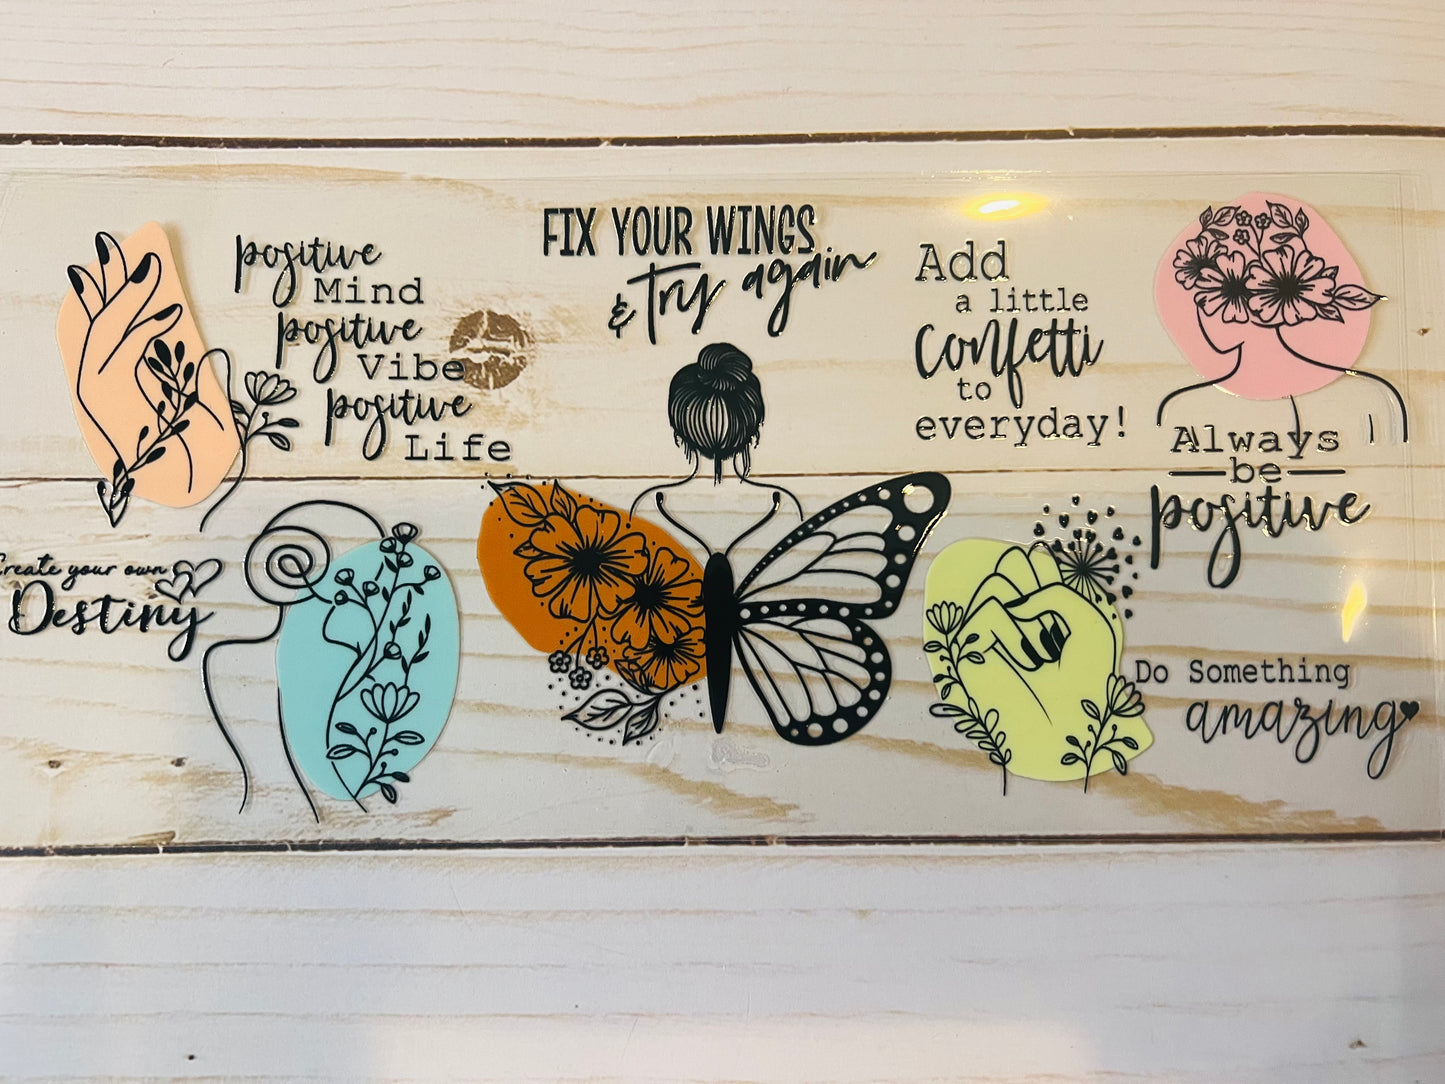 positive
Mind
positive
Vibe
positive
Life
FIX YOUR WINGS
& Try again
Add
a little
Confetti
to
everyday!
Always
be
positive
Create your own
Destiny
Do Something
amazing